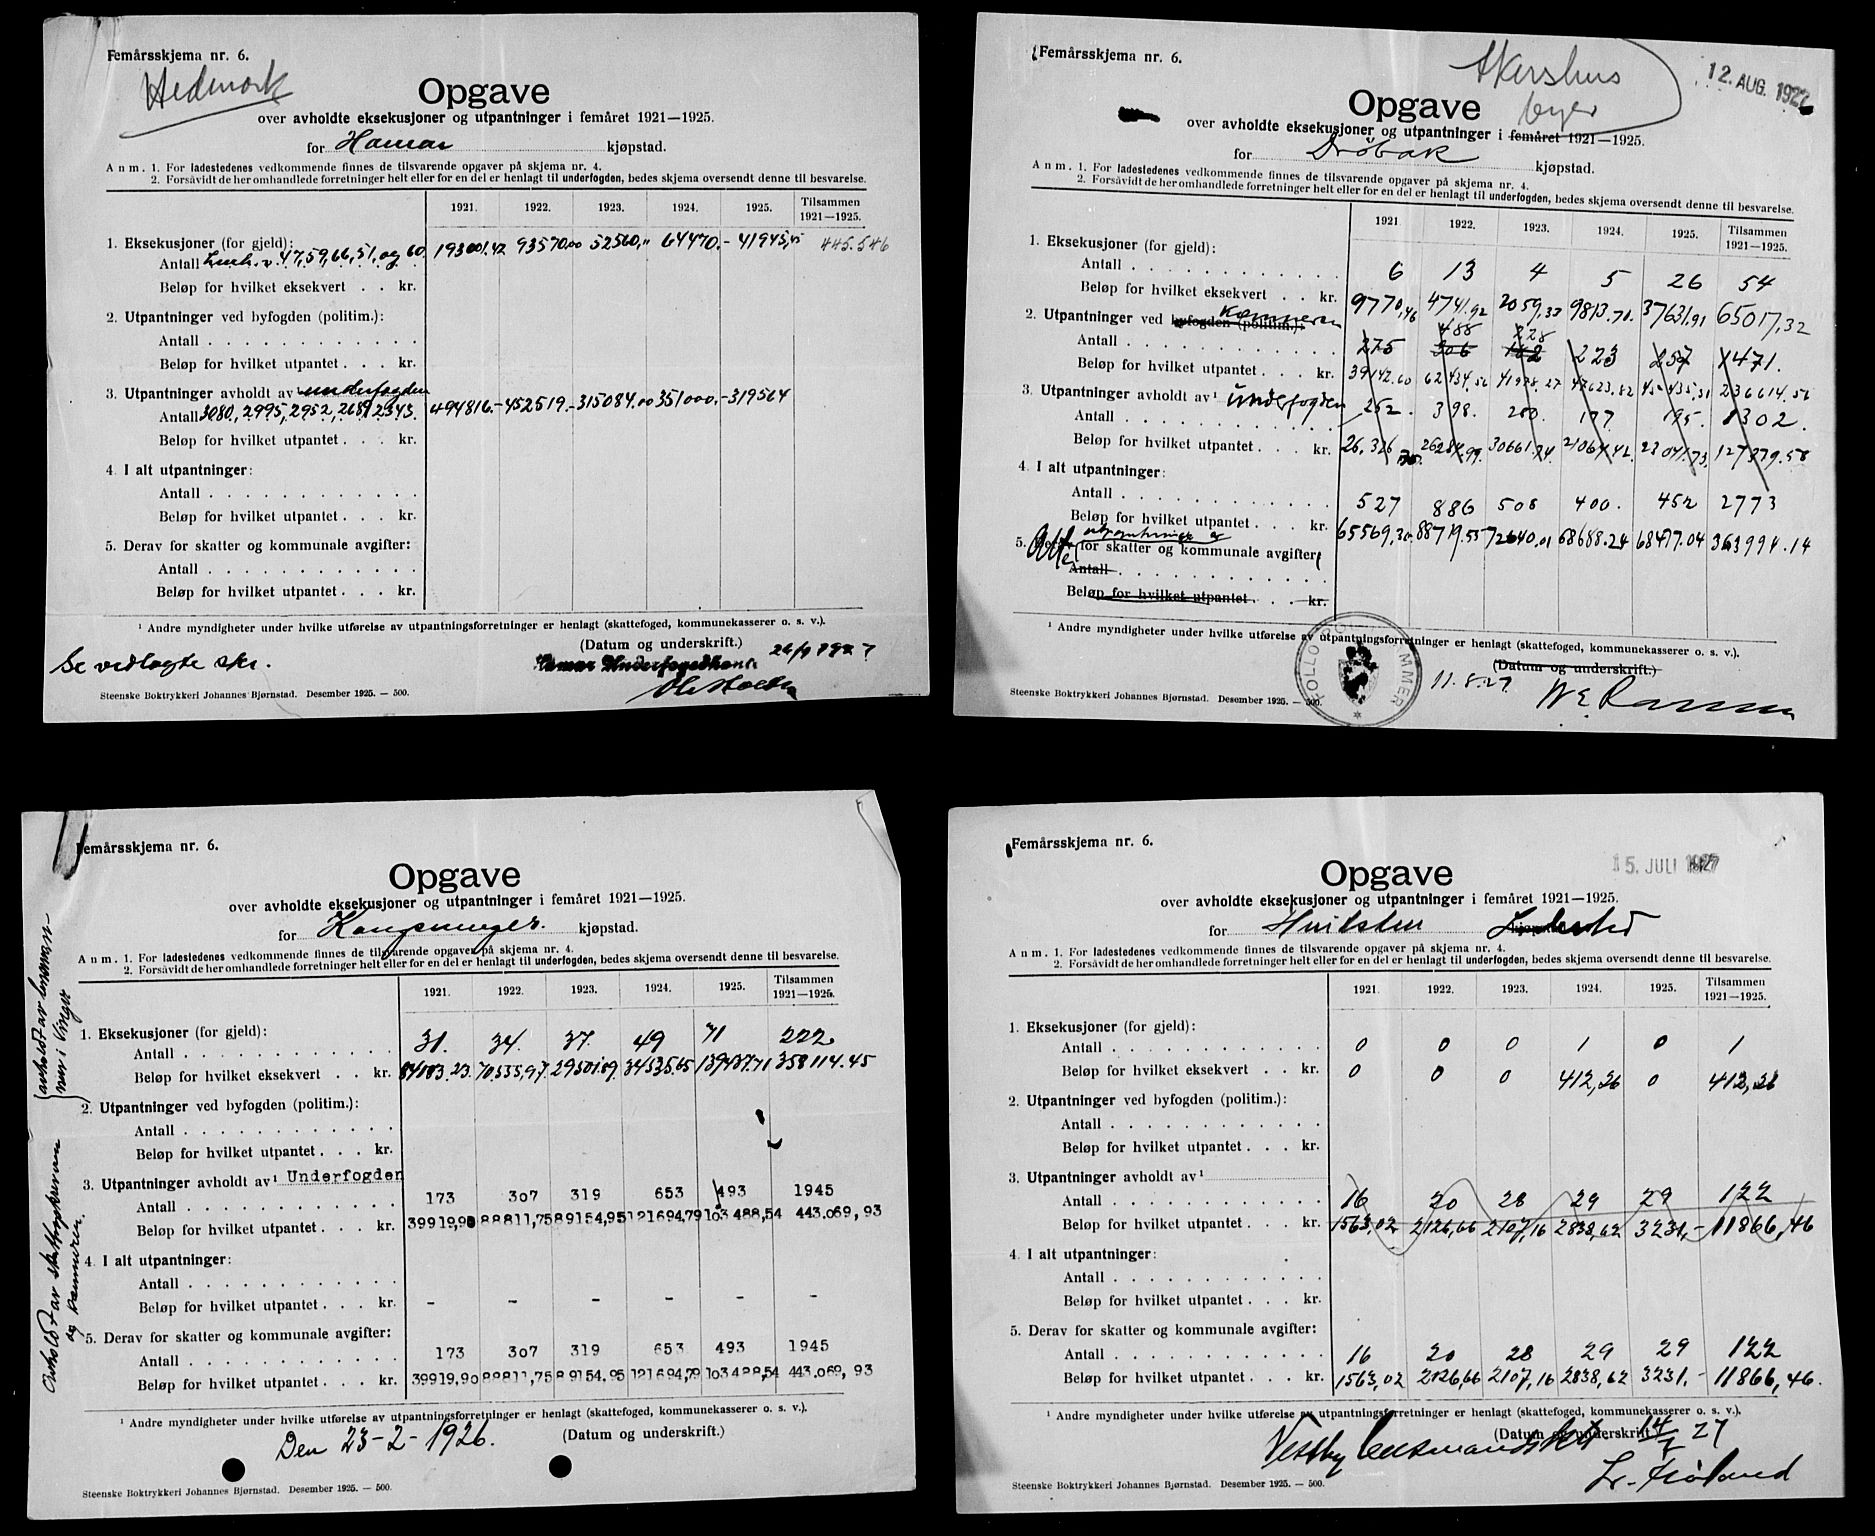 Femårsskjema nr. 6.
Hedmark
Opgave
over avholdte eksekusjoner og utpantninger i femåret 1921—1925.
for Hamar kjøpstad.
Anm. 1. For ladestedenes vedkommende finnes de tilsvarende opgaver på skjema nr. 4.
2. Forsåvidt de her omhandlede forretninger helt eller for en del er henlagt til underfogden, bedes skjema oversendt denne til besvarelse.
1921. 1922. 1923. 1924. 1925. Tilsammen 1921—1925.
1. Eksekusjoner (for gjeld):
Antall 47, 59, 66, 51, og 60. 193001.42 93570.00 52560,,, 64470.- 41945,45 445.546
Beløp for hvilket eksekvert . . kr.
2. Utpantninger ved byfogden (politim.):
Antall . . . . . . . . . . . .
Beløp for hvilket utpantet . . . kr.
3. Utpantninger avholdt av underfogden
Antall 3080, 2995, 2952, 2689, 2343. 494816.- 452519.- 315084.00 351000.- 319564
Beløp for hvilket utpantet . . . kr.
4. I alt utpantninger:
Antall . . . . . . . . . . . .
Beløp for hvilket utpantet . . . kr.
5. Derav for skatter og kommunale avgifter:
Antall . . . . . . . . . . . .
Beløp for hvilket utpantet . . . kr.
¹ Andre myndigheter under hvilke utførelse av utpantningsforretninger er henlagt (skattefoged, kommunekasserer o. s. v.).
(Datum og underskrift.)
Se vedlagte skr. Hamar Underfogedkont. 26/9 1927
Steenske Boktrykkeri Johannes Bjørnstad. Desember 1925. — 500.
Femårsskjema nr. 6.
Akershus
byer
12. AUG. 1927
Opgave
over avholdte eksekusjoner og utpantninger i femåret 1921—1925.
for Drøbak kjøpstad.
Anm. 1. For ladestedenes vedkommende finnes de tilsvarende opgaver på skjema nr. 4.
2. Forsåvidt de her omhandlede forretninger helt eller for en del er henlagt til underfogden, bedes skjema oversendt denne til besvarelse.
1921 1922. 1923. 1924. 1925. Tilsammen 1921—1925.
1. Eksekusjoner (for gjeld):
Antall . . . . . . . . . . . . 6 13 4 5 26 54
Beløp for hvilket eksekvert . . kr. 9770,46 4741.92 3059,33 9813.70. 37631.91 65017,32
2. Utpantninger ved byfogden (politim.): kæmneren
488 228
Antall . . . . . . . . . . . . 275 306 182 223 257 1471.
Beløp for hvilket utpantet . . . kr. 39142.60 62434.56 41978.27 47623.82 45435,31 236614.56
3. Utpantninger avholdt av ¹ underfogden
Antall . . . . . . . . . . . . 252. 398. 280. 177 195. 1302.
Beløp for hvilket utpantet . . . kr. 26.326 26284.99. 30661.74. 21064.42. 23041.73. 127379.58
4. I alt utpantninger:
Antall . . . . . . . . . . . . 527 886 508 400. 452 2773
Beløp for hvilket utpantet . . . kr. 65569,30. 88719.55 72640.01 68688.24 68477.04 363994.14
5. Alle utpantninger er for skatter og kommunale avgifter
Antall . . . . . . . . . . . .
Beløp for hvilket utpantet . . . kr.
¹ Andre myndigheter under hvilke utførelse av utpantningsforretninger er henlagt (skattefoged, kommunekasserer o. s. v.).
(Datum og underskrift.)
11.8.27
Steenske Boktrykkeri Johannes Bjørnstad. Desember 1925. — 500.
Femårsskjema nr. 6.
Opgave
over avholdte eksekusjoner og utpantninger i femåret 1921—1925.
for Kongsvinger. kjøpstad.
Anm. 1. For ladestedenes vedkommende finnes de tilsvarende opgaver på skjema nr. 4.
2. Forsåvidt de her omhandlede forretninger helt eller for en del er henlagt til underfogden, bedes skjema oversendt denne til besvarelse.
1921. 1922. 1923. 1924. 1925. Tilsammen 1921—1925.
avholdt av lensmannen i Vinger
1. Eksekusjoner (for gjeld):
Antall . . . . . . . . . . . . 31. 34. 37. 49 71 222
Beløp for hvilket eksekvert . . kr. 84103.23. 70535,97. 29501.89. 34535.65 139437.71 358114.45
2. Utpantninger ved byfogden (politim.):
Antall . . . . . . . . . . . .
Beløp for hvilket utpantet . . . kr.
Avholdt av skatteopkreveren og kæmneren.
3. Utpantninger avholdt av ¹ Underfogden
Antall . . . . . . . . . . . . 173 307 319 653 493 1945
Beløp for hvilket utpantet . . . kr. 39919,90 88811,75 89154,95 121694,79 103 488,54 443.069,93
4. I alt utpantninger:
Antall . . . . . . . . . . . .
Beløp for hvilket utpantet . . . kr. - - - - - -
5. Derav for skatter og kommunale avgifter:
Antall . . . . . . . . . . . . 173 307 319 653 493 1945
Beløp for hvilket utpantet . . . kr. 39919,90 88811,75 89154.95 121694,79 103488,54 443.069,93
¹ Andre myndigheter under hvilke utførelse av utpantningsforretninger er henlagt (skattefoged, kommunekasserer o. s. v.).
Den 23-2-1926. (Datum og underskrift.)
Steenske Boktrykkeri Johannes Bjørnstad. Desember 1925. — 500.
Femårsskjema nr. 6.
15. JULI 1927
Opgave
over avholdte eksekusjoner og utpantninger i femåret 1921—1925.
for Hvitsten Ladested
Anm. 1. For ladestedenes vedkommende finnes de tilsvarende opgaver på skjema nr. 4.
2. Forsåvidt de her omhandlede forretninger helt eller for en del er henlagt til underfogden, bedes skjema oversendt denne til besvarelse.
1921. 1922. 1923. 1924. 1925. Tilsammen 1921—1925.
1. Eksekusjoner (for gjeld):
Antall . . . . . . . . . . . . 0 0 0 1 0 1
Beløp for hvilket eksekvert . . kr. 0 0 0 412,26 0 412,26
2. Utpantninger ved byfogden (politim.):
Antall . . . . . . . . . . . .
Beløp for hvilket utpantet . . . kr.
3. Utpantninger avholdt av ¹
Antall . . . . . . . . . . . . 16 20 28 29 29 122
Beløp for hvilket utpantet . . . kr. 1563,02 2126,66 2107,16 2838,62 3231,- 11866,46
4. I alt utpantninger:
Antall . . . . . . . . . . . .
Beløp for hvilket utpantet . . . kr.
5. Derav for skatter og kommunale avgifter:
Antall . . . . . . . . . . . . 16 20 28 29 29 122
Beløp for hvilket utpantet . . . kr. 1563,02 2126,66 2107,16 2838,62 3231.- 11866,46.
¹ Andre myndigheter under hvilke utførelse av utpantningsforretninger er henlagt (skattefoged, kommunekasserer o. s. v.).
(Datum og underskrift.)
Vestby lensmandskont. 14/7 27
Steenske Boktrykkeri Johannes Bjørnstad. Desember 1925. — 500.